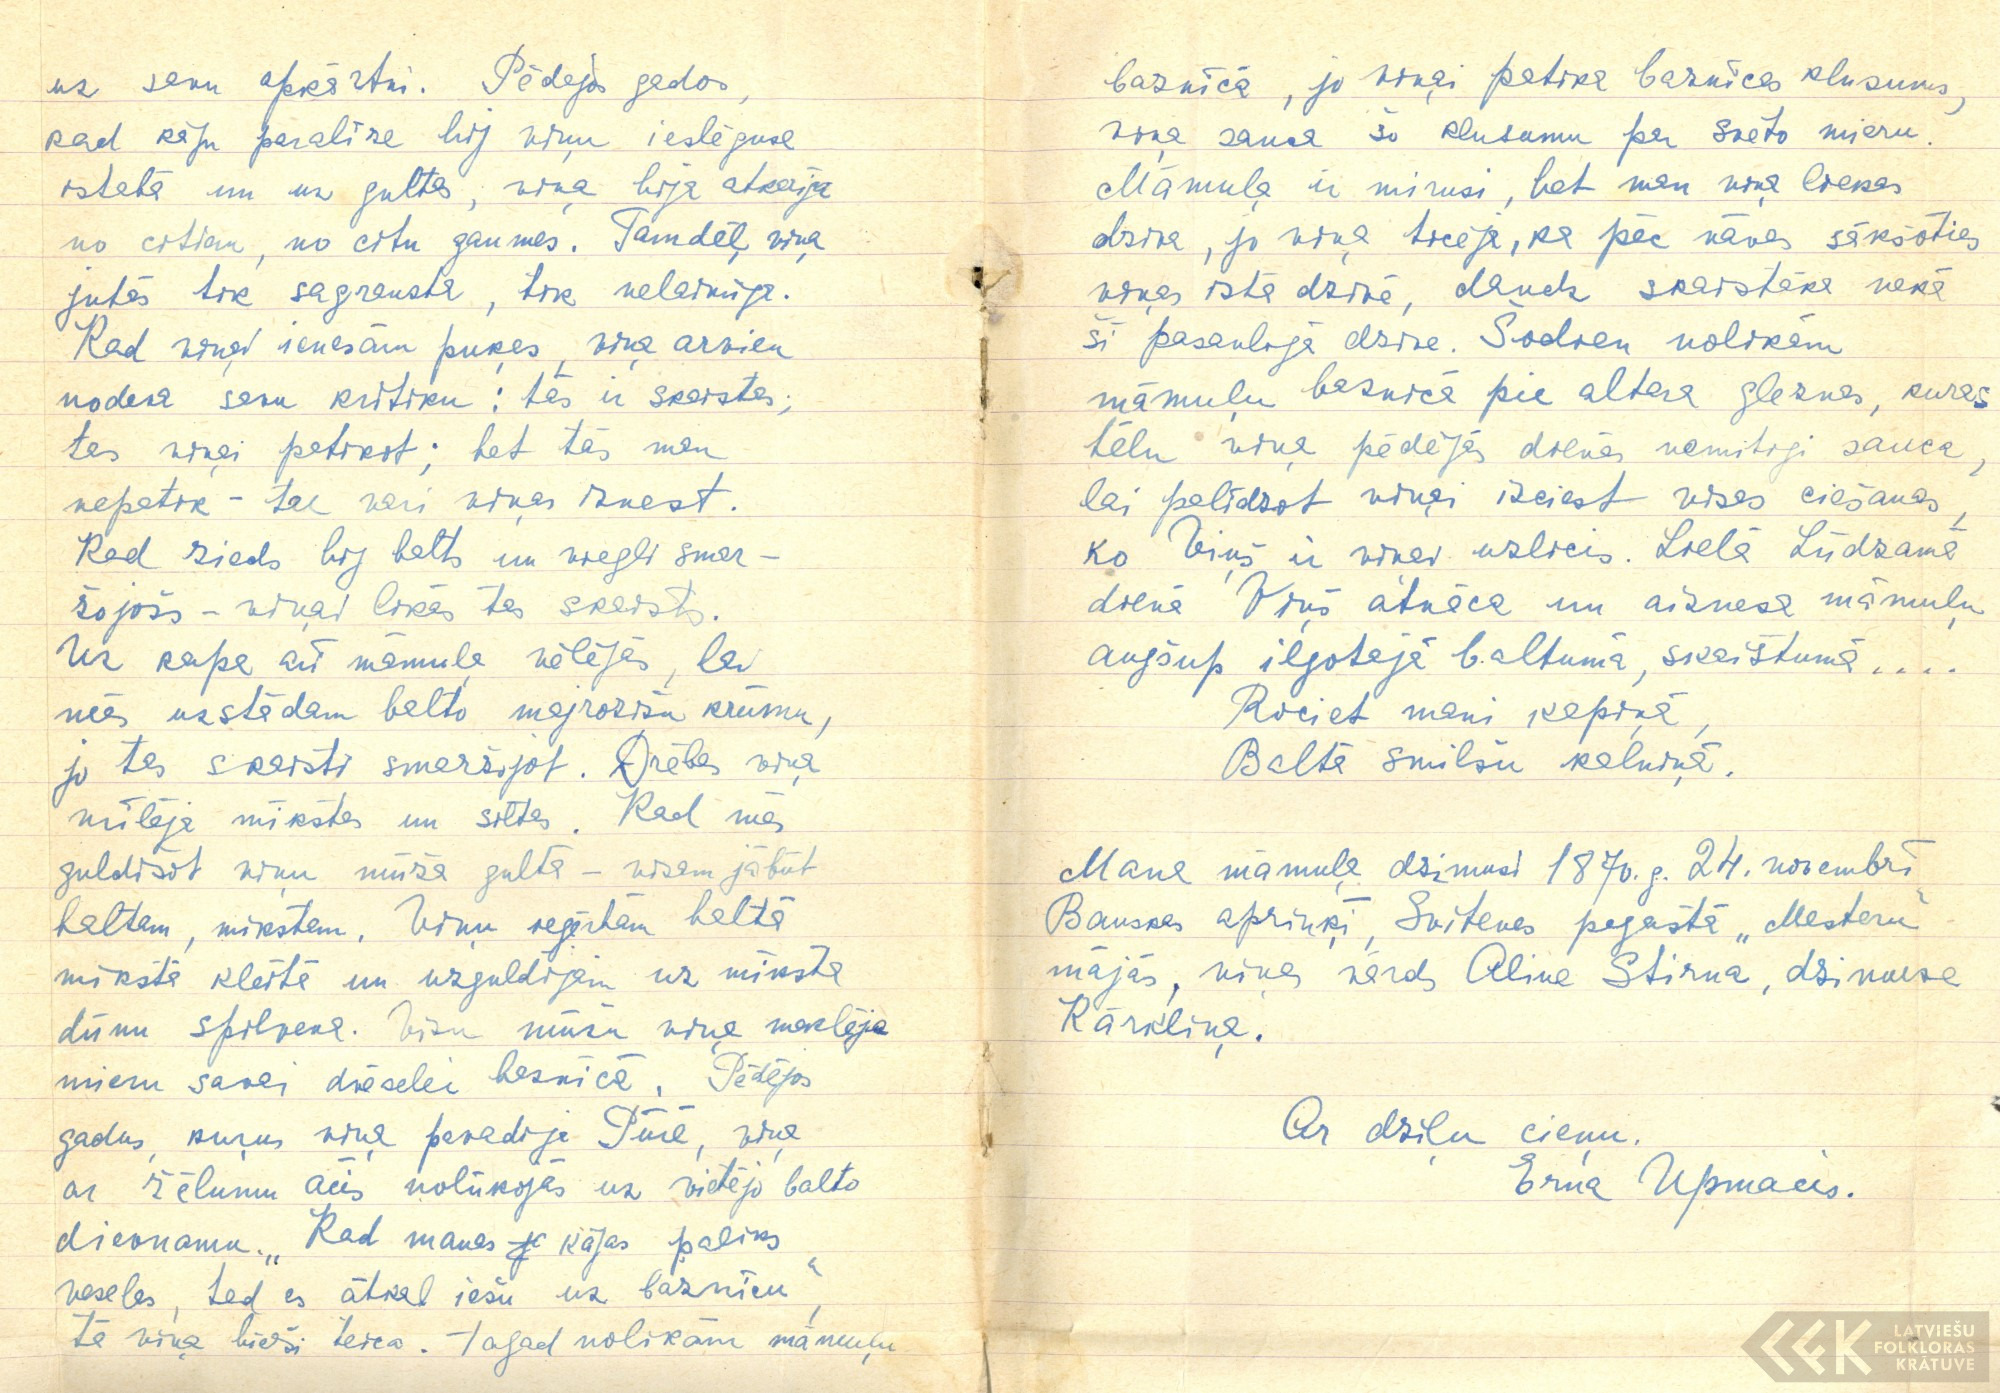 uz savu apkārtni. Pēdējos gados,
kad kāju paralīze bij viņu ieslēguse
istabā un uz gultas, viņa bija atkarīga
no citiem, no citu gaumes. Tamdēļ viņa
jutās tik sagrauzta, tik nelaimīga.
Kad viņai ienesām puķes, viņa arvien
nodeva savu kritiku: tās ir skaistas;
tas viņai patīkot; bet tās man
nepatīk – tac vari viņas iznest.
Kad zieds bij balts un viegli smar-
žojošs – viņai likās tas skaists.
Uz kapa arī māmuļa vēlējās, lai
mēs uzstādam balto majrozīšu krūmu,
jo tas skaisti smaržijot. Drēbes viņa
mīlēja mīkstas un siltas. Kad mēs
guldīšot viņu mūža gultā – visam jābūt
baltam, mīkstam. Viņu ieģērbām baltā
mīkstā kleitā un uzguldījām uz mīksta
dūnu spilvena. Visu mūžu viņa meklēja
mieru savai dvēselei baznīcā. Pēdējos
gadus, kuŗus viņa pavadija Pūrē, viņa
ar žēlumu acīs nolūkojās uz vietējo balto
dievnamu. „Kad manas kājas paliks
veselas, tad es atkal iešu uz baznicu“,
tā viņa bieži teica. Tagad nolikām māmuļu
baznīcā, jo viņai patika baznīcas klusums,
viņa sauca šo klusumu par svēto mieru.
Māmuļa ir mirusi, bet man viņa liekas
dzīva, jo viņa ticēja, ka pēc nāves sāksoties
viņas īstā dzīve, daudz skaistāka nekā
šī pasaulīgā dzīve. Šodien nolikām
māmuļu baznīcā pie altara gleznas, kuras
tēlu viņa pēdējās dienās nemitīgi sauca,
lai palīdzot viņai izciest visas ciešanas,
ko Viņš ir viņai uzlicis. Lielā Lūdzamā
dienā Viņš atnāca un aiznesa māmuļu
augšup ilgotajā baltumā, skaistumā....
Rociet mani kapiņā,
Baltā smilšu kalniņā.
Mana māmuļa dzimusi 1870.g. 24. novembrī
Bauskas apriņķī, Svitenes pagastā „Mesteru“
mājās, viņas vārds Alina Stirna, dzimuse
Kārkliņa.
Ar dziļu cieņu.
Erna Upmacis.
LATVIEŠU
FOLKLORAS
KRĀTUVE